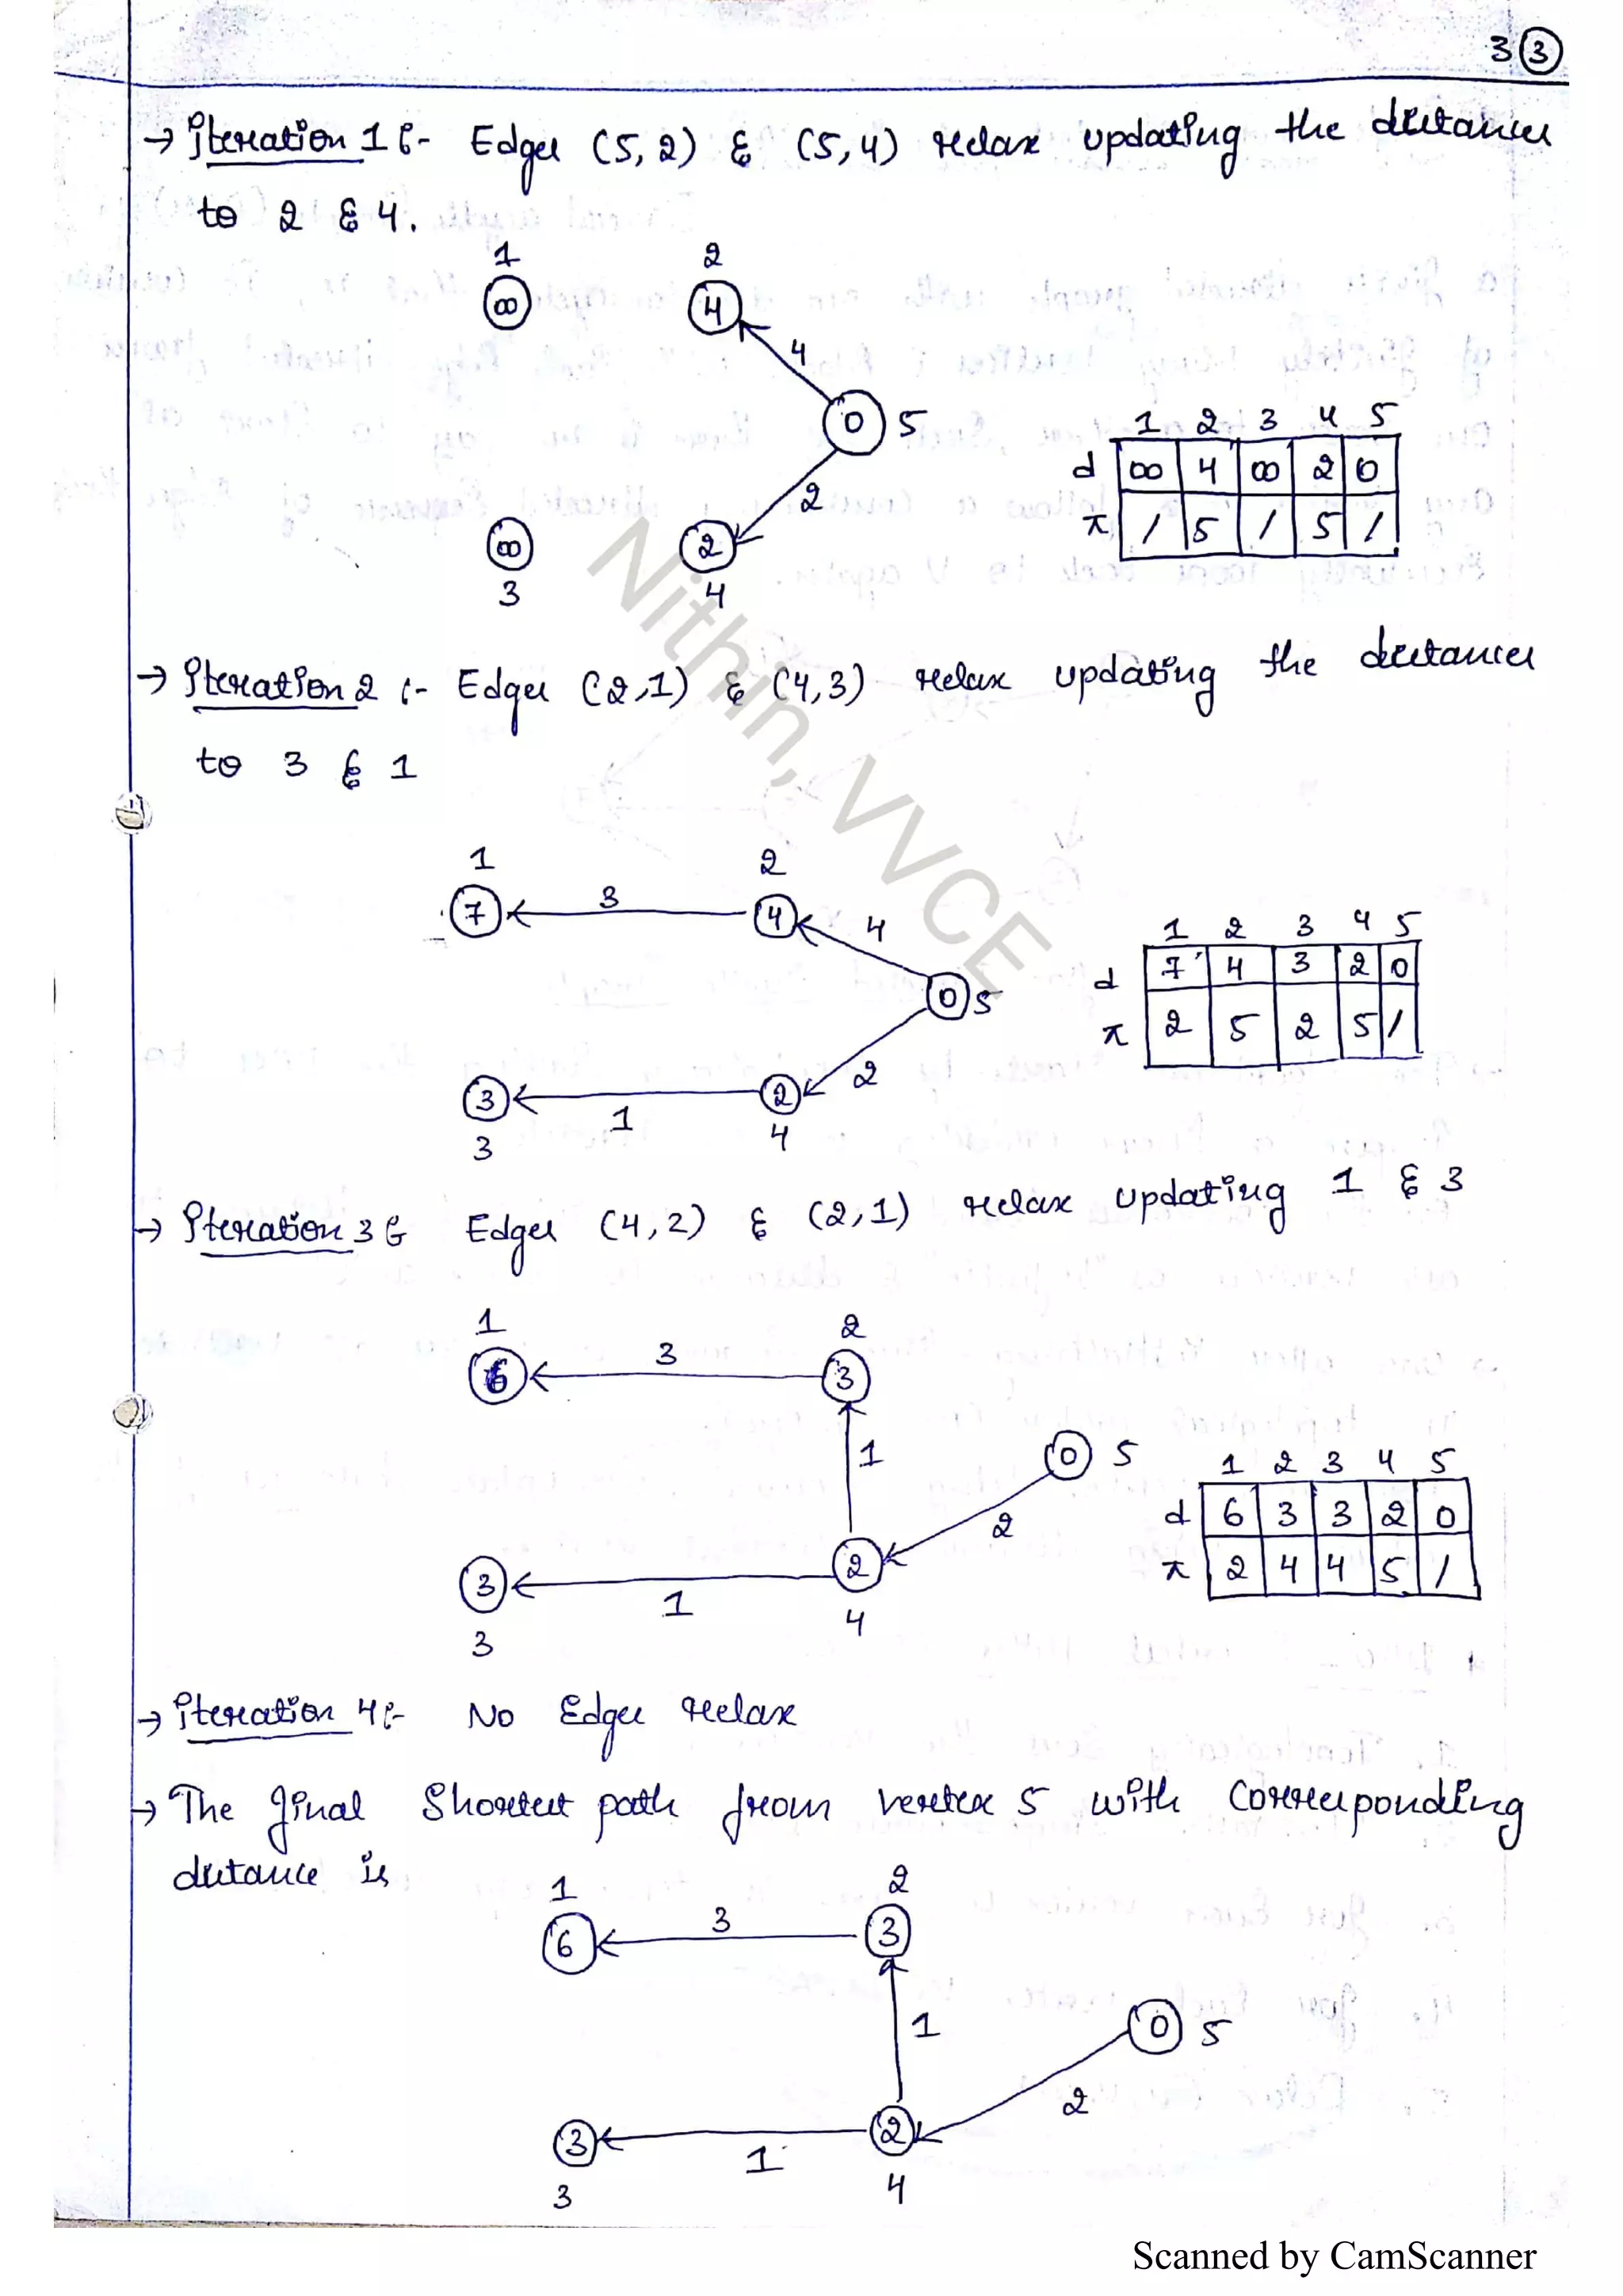 3 3
→ Iteration 1 :- Edges (5, 2) & (5, 4) relax updating the distances
to 2 & 4.
1 2
∞ 4
4
0 5
2
∞ 2
3 4
1 2 3 4 5
d ∞ 4 ∞ 2 0
π / 5 / 5 /
→ Iteration 2 :- Edges (2,1) & (4,3) relax updating the distances
to 3 & 1
1 2
7 3 4
4
0 5
2
3 1 2
3 4
1 2 3 4 5
d 7 4 3 2 0
π 2 5 2 5 /
→ Iteration 3 :- Edges (4,2) & (2,1) relax updating 1 & 3
1 2
6 3 3
1
0 5
2
3 1 2
3 4
1 2 3 4 5
d 6 3 3 2 0
π 2 4 4 5 /
→ iteration 4 :- No Edges relax
→ The final Shortest path from vertex 5 with Corresponding
distance is
1 2
6 3 3
1
0 5
2
3 1 2
3 4
Nithin, VVCE
Scanned by CamScanner